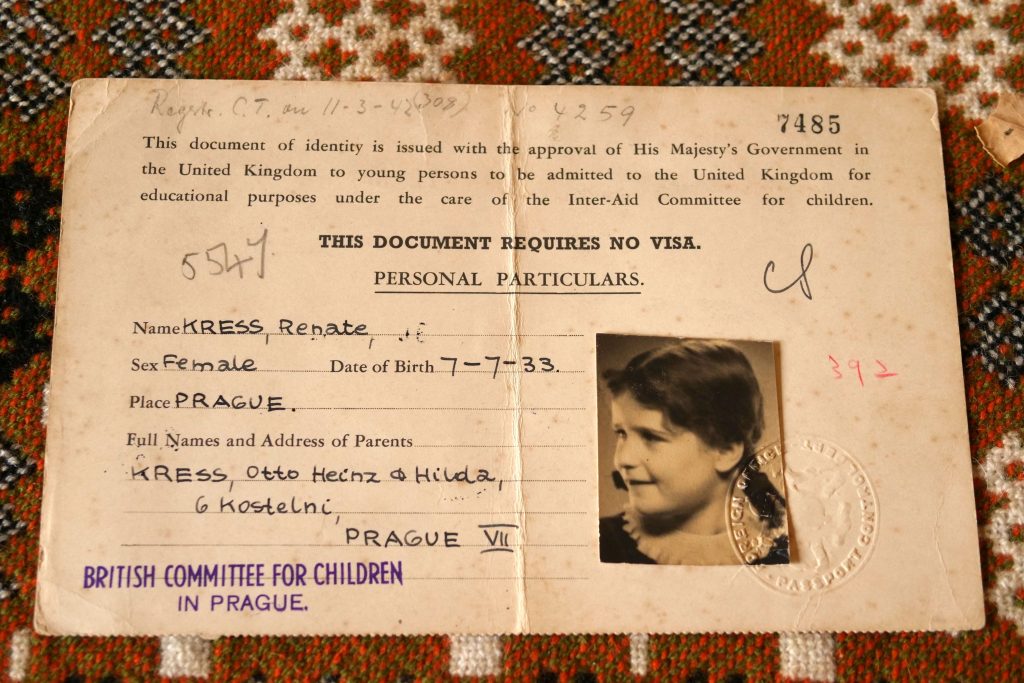 Registr. C.T. on 11-3-42 (308) No 4259
7485
This document of identity is issued with the approval of His Majesty's Government in
the United Kingdom to young persons to be admitted to the United Kingdom for
educational purposes under the care of the Inter-Aid Committee for children.
THIS DOCUMENT REQUIRES NO VISA.
5547
PERSONAL PARTICULARS.
Name KRESS, Renate,
Sex Female Date of Birth 7-7-33.
392
Place PRAGUE.
Full Names and Address of Parents
KRESS, Otto Heinz & Hilda,
6 Kostelni,
PRAGUE VII
BRITISH COMMITTEE FOR CHILDREN
IN PRAGUE.
PASSPORT CONTROL DEPT FOREIGN OFFICE